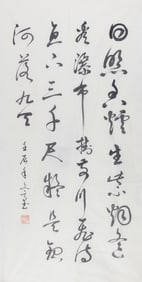 日照香爐生紫烟遙
看瀑布掛前川飛流
直下三千尺疑是銀
河落九天
壬辰年